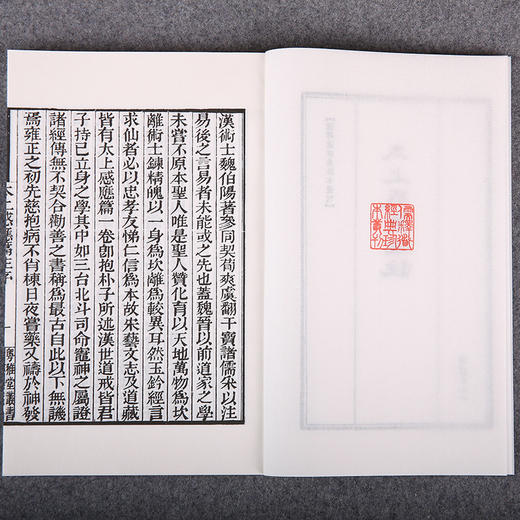 漢術士魏伯陽著參同契荀爽虞翻干寶諸儒采以注
易後之言易者未能或之先也蓋魏晉以前道家之學
未嘗不原本聖人唯是聖人贊化育以天地萬物爲坎
離術士鍊精魄以一身爲坎離爲較異耳然玉鈐經言
求仙者必以忠孝友悌仁信爲本故宋藝文志及道藏
皆有太上感應篇一卷卽抱朴子所述漢世道戒皆君
子持己立身之學其中如三台北斗司命竈神之屬證
諸經傳無不契合勸善之書稱爲最古自此以下無譏
焉雍正之初先慈抱病不肖棟日夜嘗藥又禱於神發
太上感應篇注序
一
粤雅堂叢書